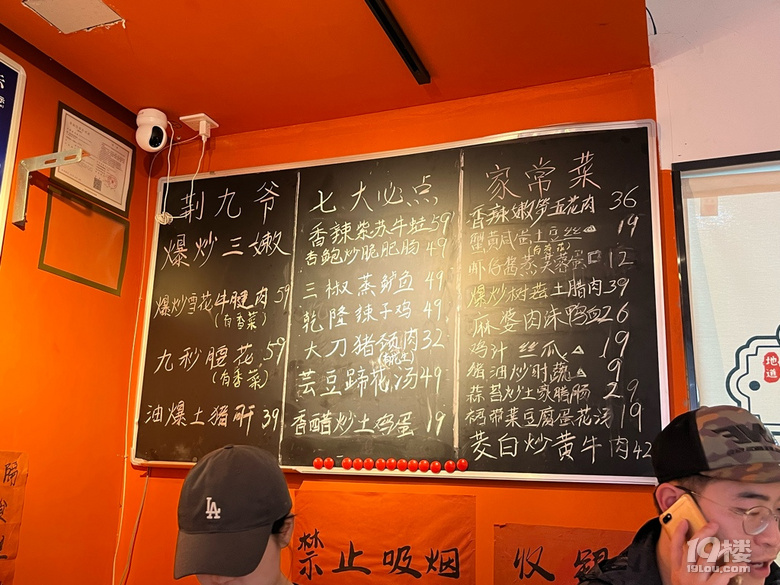 荆九爷
爆炒三嫩
爆炒雪花牛腱肉 59
(白香菜)
九秒腰花 59
(白香菜)
油爆土猪肝 39
七大必点
香辣紫苏牛蛙 59
杏鲍炒脆肥肠 49
三椒蒸鲈鱼 49
乾隆辣子鸡 49
大刀猪颈肉 32
芸豆蹄花汤 49
香醋炒土鸡蛋 19
家常菜
香辣嫩笋五花肉 36
蟹黄咸蛋土豆丝 19
蒸芙蓉蛋 12
爆炒树菇土腊肉 39
麻婆肉沫鸭血 26
鸡汁丝瓜 19
猪油炒时蔬 9
蒜苔炒土家腊肠 29
裙带菜豆腐蛋花汤 19
茭白炒黄牛肉 42
禁止吸烟
收
地道
LA
19楼
19lou.com